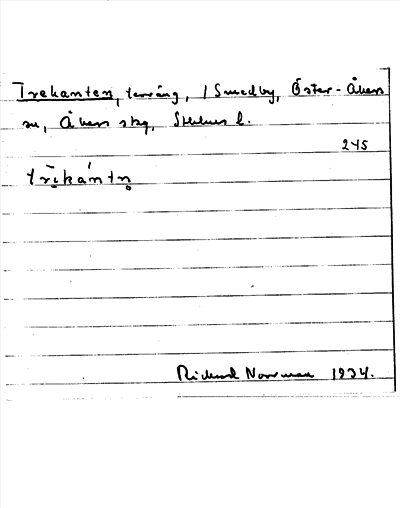 Trekanten, terräng, / Smedby, Öster-Åkers
sn, Åkers skg, Sthlms l.
245
trēkántn̥
Rickard Norrman 1934.